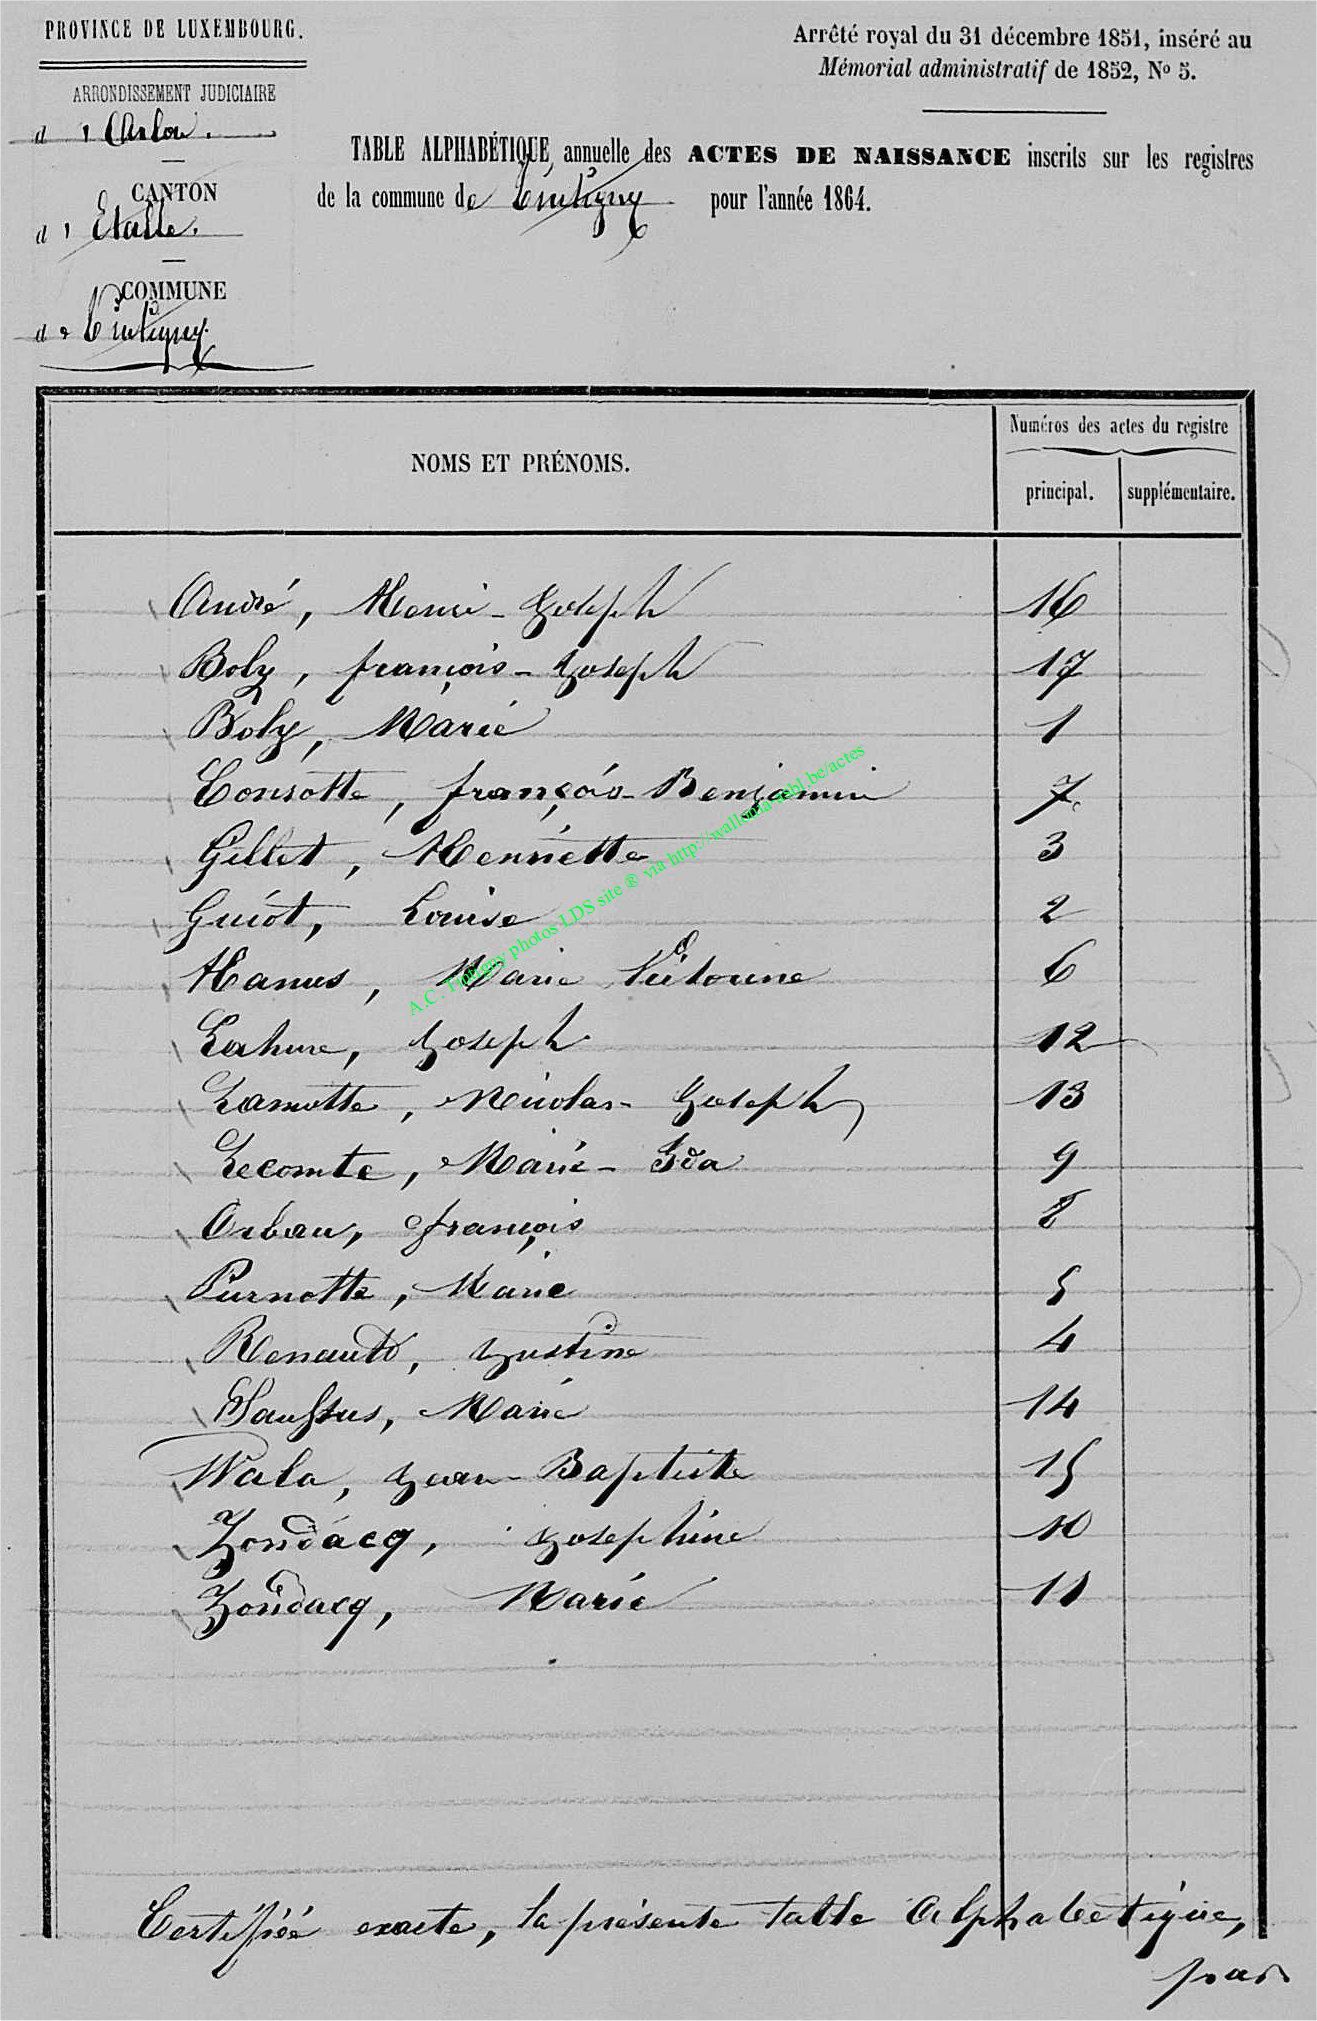 PROVINCE DE LUXEMBOURG.
ARRONDISSEMENT JUDICIAIRE
d'Arlon.
CANTON
d'Etalle.
COMMUNE
de Tintigny.
Arrêté royal du 31 décembre 1851, inséré au
Mémorial administratif de 1852, No 5.
TABLE ALPHABÉTIQUE annuelle des ACTES DE NAISSANCE inscrits sur les registres
de la commune de Tintigny pour l'année 1864.
NOMS ET PRÉNOMS.
Numéros des actes du registre
principal. supplémentaire.
André, Henri-Joseph 16
Boly, françois-Joseph 17
Boly, Marie 1
Consotte, françois-Benjamin 7
Gillet, Henriette 3
Guiot, Louise 2
Hanus, Marie Victorine 6
Lahure, Joseph 12
Lamotte, Nicolas-Joseph 13
Lecomte, Marie-Ida 9
Orban, françois 8
Purnotte, Marie 5
Renauld, Justine 4
Saussus, Marie 14
Wala, Jean-Baptiste 15
Zondacq, Josephine 10
Zondacq, Marie 11
Certifiée exacte, la présente table alphabétique,
par
A.C. Tintigny photos LDS site ® via http://wallonia-asbl.be/actes